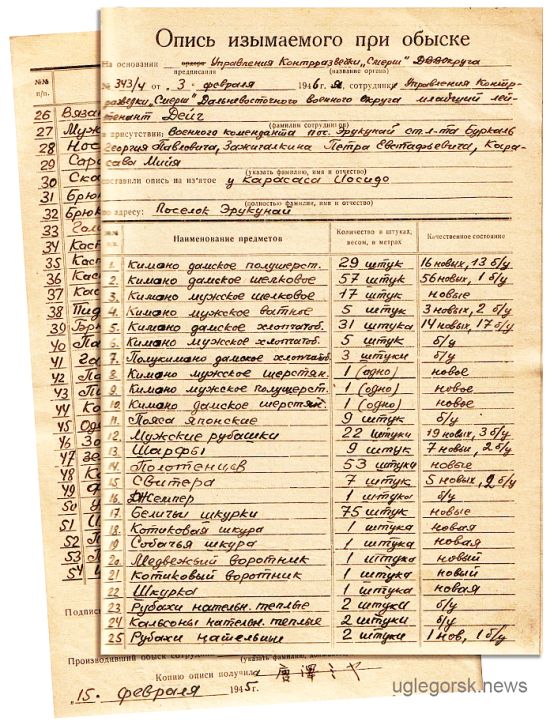 Опись изымаемого при обыске
На основании ордера Управления Контрразведки „Смерш" ДВ округа
предписания (название органа)
№ 343/4 от „3" февраля 1946 г. Я, сотрудник Управления Контр-
разведки „Смерш" Дальневосточного военного округа младший лей-
тенант Дейч
(фамилия сотрудника)
в присутствии: военного коменданта пос. Эрукунай ст. л-та Буркаль
Георгия Павловича, Зажигалкина Петра Евстафьевича, Кара-
савы Мийя
(указать фамилию, имя и отчество)
составили опись на из'ятое у Карасаса Иосидо
(полностью фамилия, имя и отчество)
по адресу: Поселок Эрукунай
№№ п.п. Наименование предметов Количество в штуках, весом, в метрах Качественное состояние
1. Кимано дамское полушерст. 29 штук 16 новых, 13 б/у
2. Кимано дамское шелковое 57 штук 56 новых, 1 б/у
3. Кимано мужское шелковое 17 штук новые
4. Кимано мужское ватное 5 штук 3 новых, 2 б/у
5. Кимано дамское хлопчатоб. 31 штука 14 новых, 17 б/у
6. Кимано мужское хлопчатоб. 5 штук б/у
7. Полукимано дамское хлопчатоб. 3 штуки б/у
8. Кимано мужское шерстян. 1 (одно) новое
9. Кимано мужское полушерст. 1 (одно) новое
10. Кимано дамское шерстян. 1 (одно) новое
11. Пояса японские 9 штук б/у
12. Мужские рубашки 22 штуки 19 новых, 3 б/у
13 Шарфы 9 штук 7 новых, 2 б/у
14 Полотенцев 53 штуки новые
15 Свитера 7 штук 5 новых, 2 б/у
16 Джемпер 1 штука б/у
17 Беличьи шкурки 75 штук новые
18. Котиковая шкура 1 штука новая
19 Собачья шкура 1 штука новая
20. Медвежьий воротник 1 штука новый
21 Котиковый воротник 1 штука новый
22 Шкурка 1 штука новая
23 Рубахи нательн. теплые 2 штуки б/у
24 Кальсоны нательн. теплые 2 штуки б/у
25 Рубахи нательные 2 штуки 1 нов, 1 б/у
№№ п.п.
26 Вяза
27 Муж
28 Нос
29
30 Ска
31 Брюк
32 Брюк
33
34 Каст
35 Каст
36 Кас
37 Кас
38 Пид
39 Брю
40 Па
41
42 Па
43
44 Ко
45 Од
46 За
47
48 К
49
50
51
52 П
53 П
54
Подпис
Производивший обыск сотрудник
(указать фамилию,
Копию описи получил 唐澤ミヤ
„15„ февраля 1945г.
uglegorsk.news